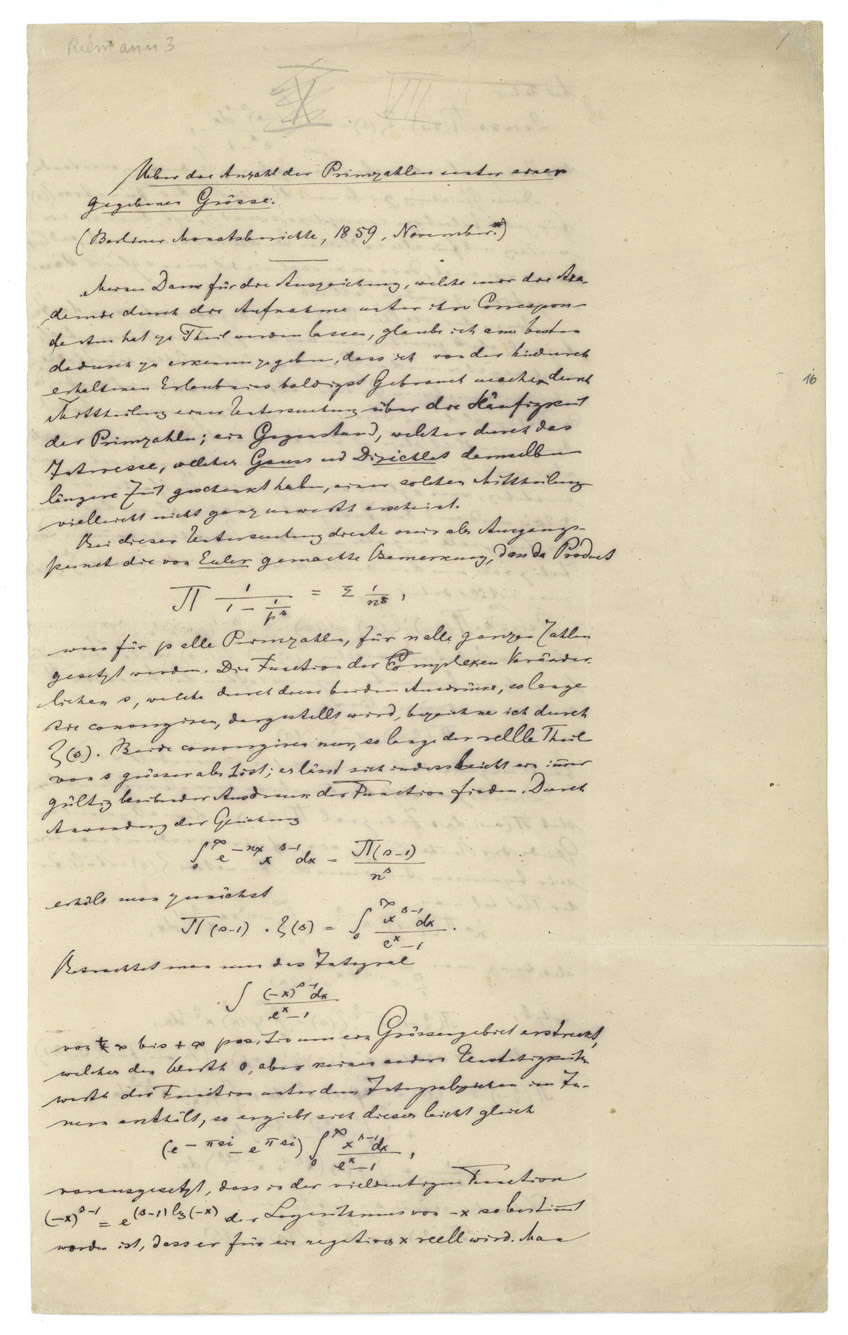 Riemann 3
1
VII
Ueber die Anzahl der Primzahlen unter einer
gegebenen Grösse.
(Berliner Monatsberichte, 1859, November.*)
Meinen Dank für die Auszeichnung, welche mir die Aka-
demie durch die Aufnahme unter ihre Correspon-
denten hat zu Theil werden lassen, glaube ich am besten
dadurch zu erkennen zu geben, dass ich von der hiedurch
erhaltenen Erlaubniss baldigst Gebrauch mache durch
Mittheilung einer Untersuchung über die Häufigkeit
der Primzahlen; ein Gegenstand, welcher durch das
Interesse, welches Gauss und Dirichlet demselben
längere Zeit geschenkt haben, einer solchen Mittheilung
vielleicht nicht ganz unwerth erscheint.
Bei dieser Untersuchung diente mir als Ausgangs-
punkt die von Euler gemachte Bemerkung, dass das Product
∏ 1/(1 − 1/p^s) = Σ 1/n^s,
wenn für p alle Primzahlen, für n alle ganzen Zahlen
gesetzt werden. Die Function der complexen Veränder-
lichen s, welche durch diese beiden Ausdrücke, so lange
sie convergiren, dargestellt wird, bezeichne ich durch
ζ(s). Beide convergiren nur, so lange der reelle Theil
von s grösser als 1 ist; es lässt sich indess leicht ein immer
gültig bleibender Ausdruck der Function finden. Durch
Anwendung der Gleichung
∫₀^∞ e^{−nx} x^{s−1} dx = Π(s−1)/n^s
erhält man zunächst
Π(s−1) . ζ(s) = ∫₀^∞ x^{s−1}dx/(e^x−1).
Betrachtet man nun das Integral
∫ (−x)^{s−1}dx/(e^x−1)
von + ∞ bis + ∞ positiv um ein Grössengebiet erstreckt,
welches den Werth 0, aber keinen andern Unstetigkeits-
werth der Function unter dem Integralzeichen im In-
nern enthält, so ergiebt sich dieses leicht gleich
(e^{−πsi} − e^{πsi}) ∫₀^∞ x^{s−1}dx/(e^x−1),
vorausgesetzt, dass in der vieldeutigen Function
(−x)^{s−1} = e^{(s−1) lg(−x)} der Logarithmus von −x so bestimmt
worden ist, dass er für ein negatives x reell wird. Man
16